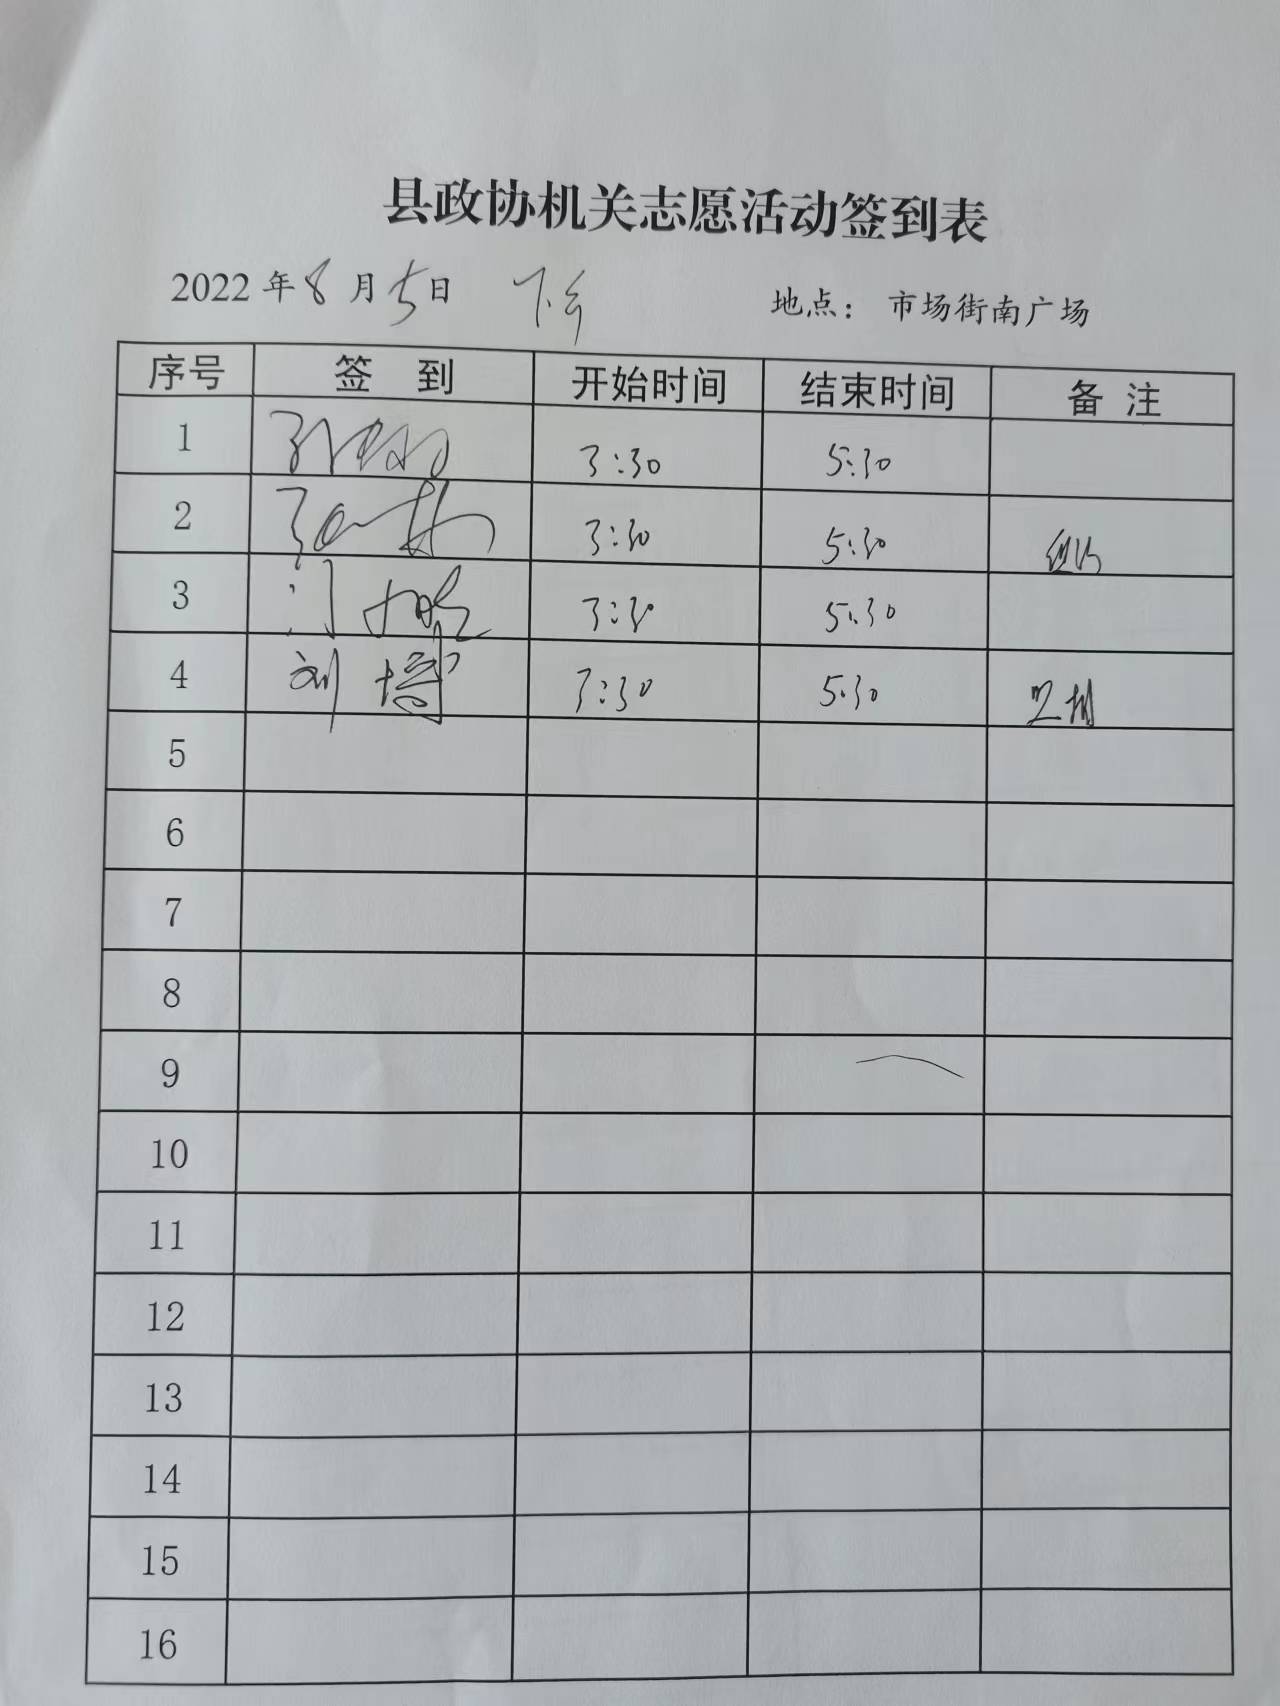 县政协机关志愿活动签到表
2022年8月5日 下午 地点：市场街南广场
序号 签 到 开始时间 结束时间 备 注
1 3:30 5:30
2 3:30 5:30
3 3:30 5:30
4 刘 3:30 5:30
5
6
7
8
9
10
11
12
13
14
15
16